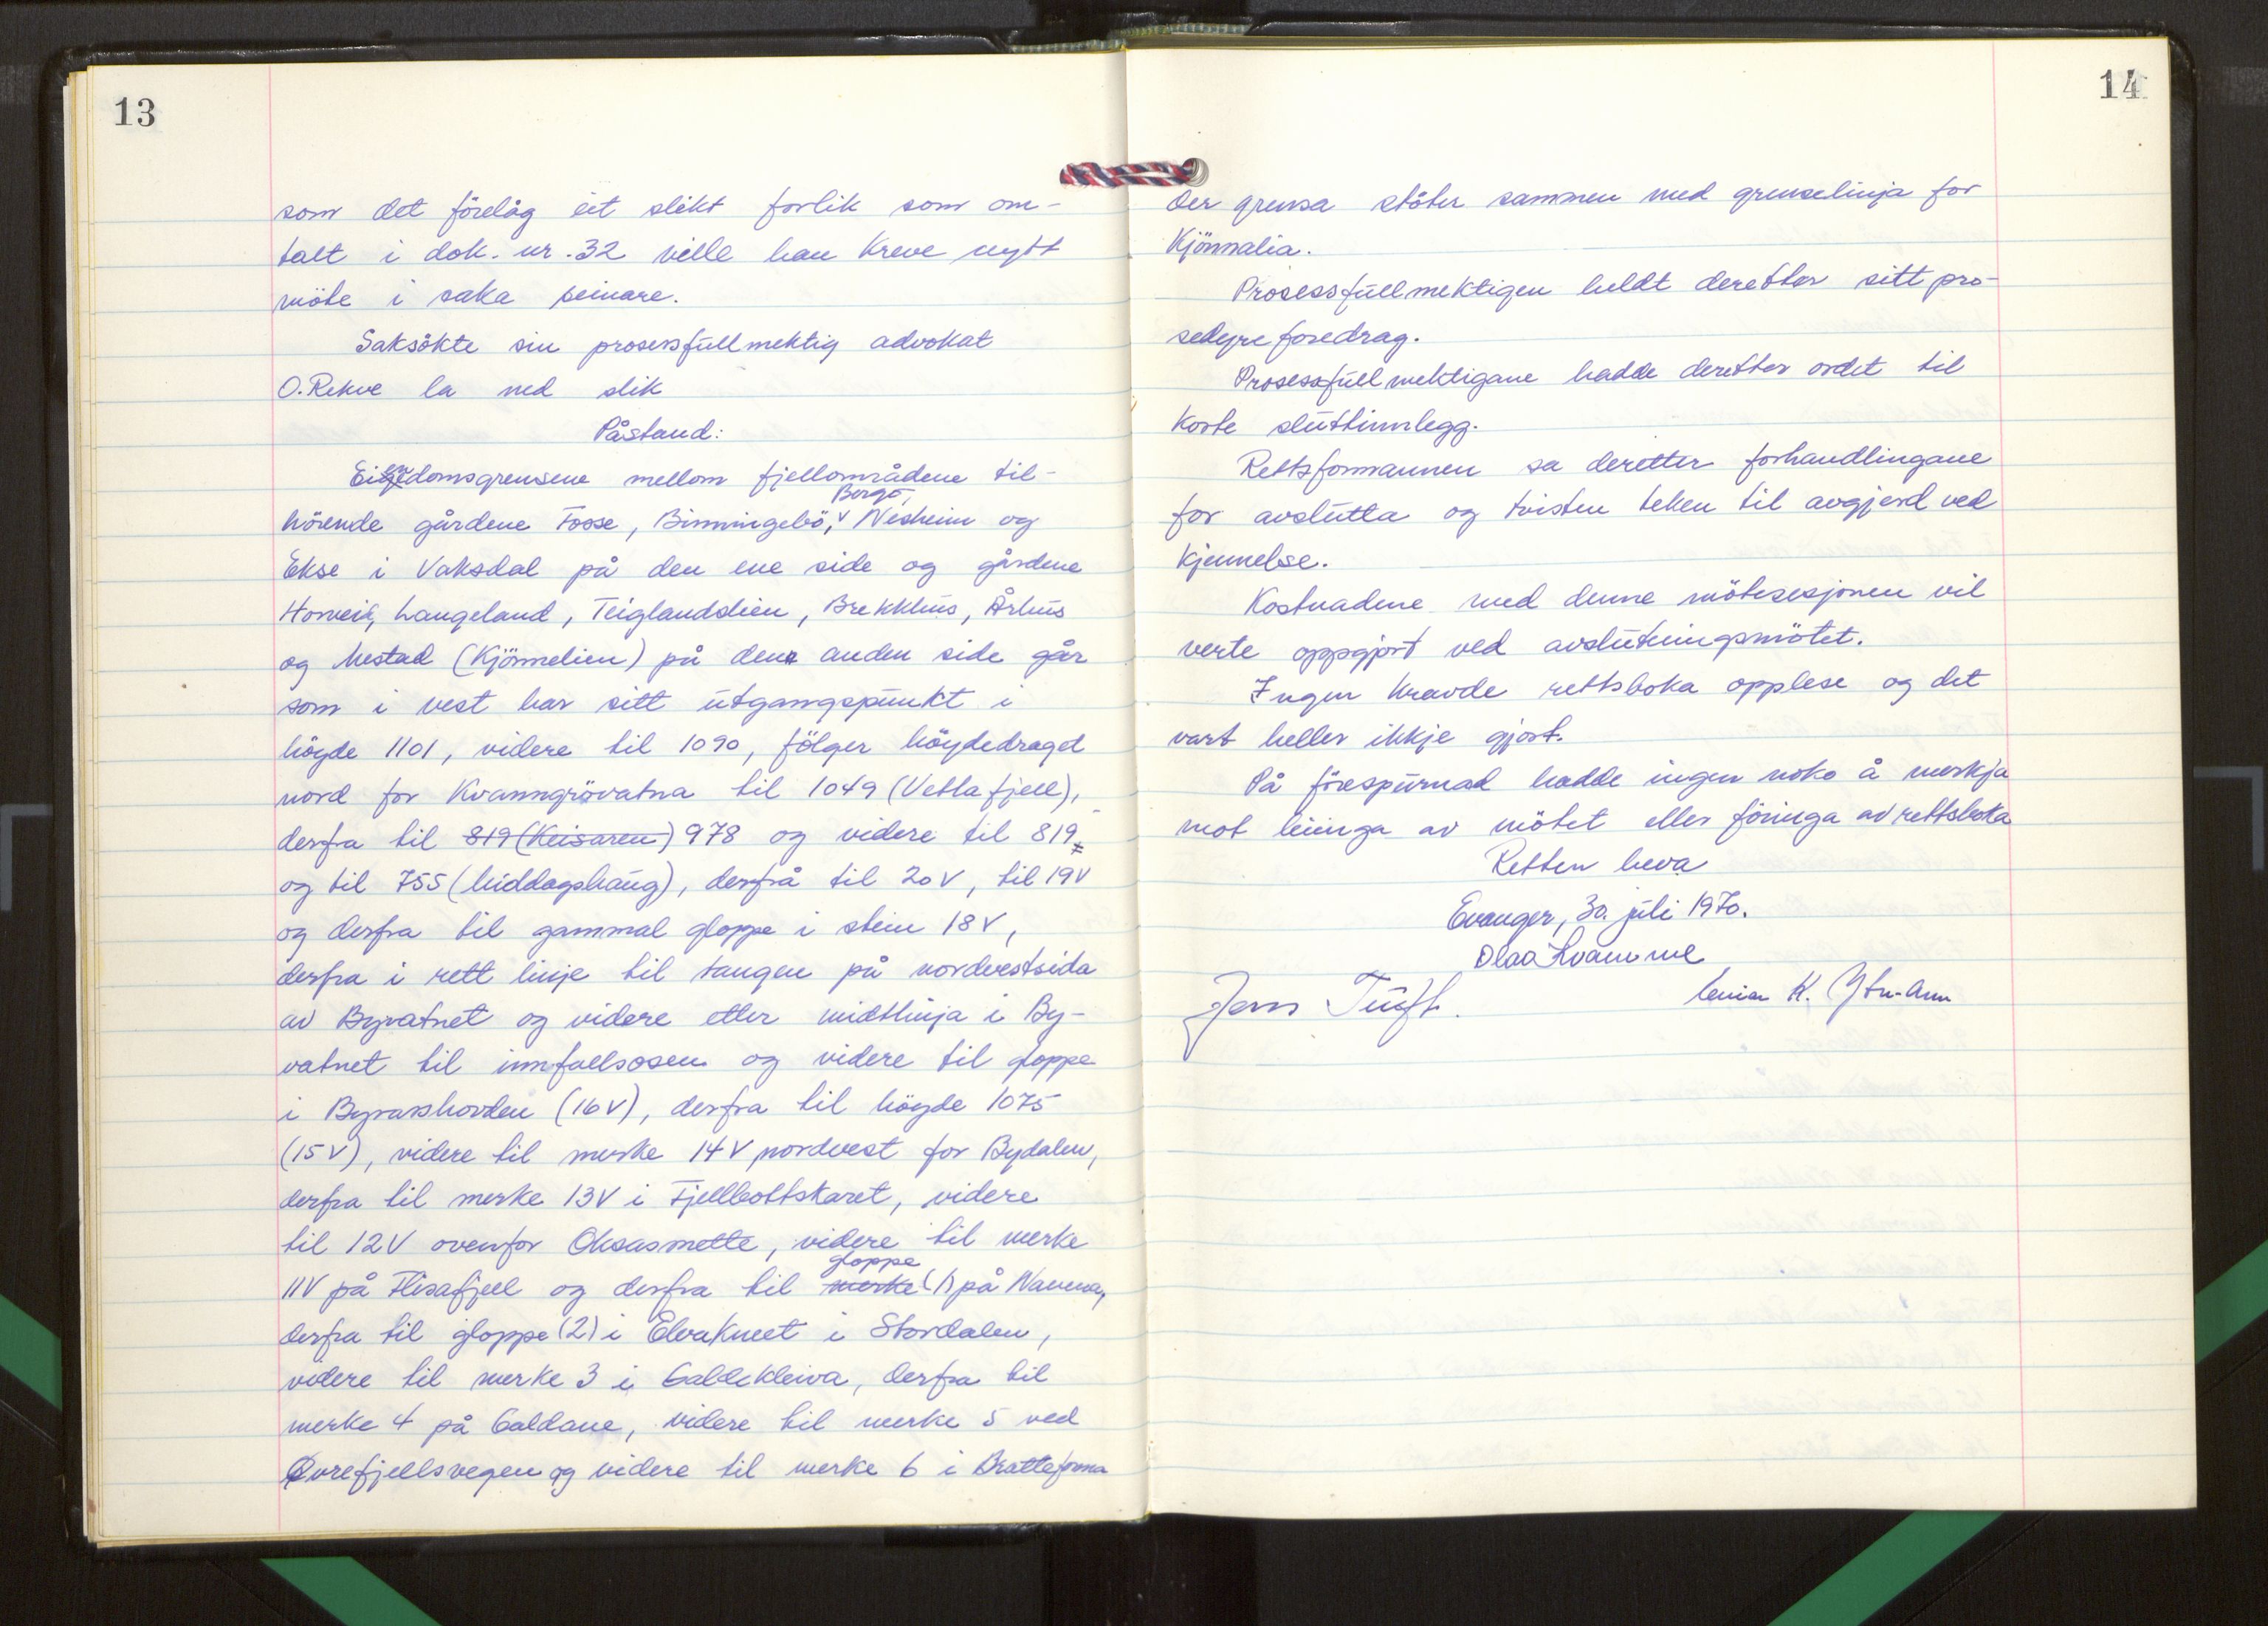 13
som det förelåg eit slikt forlik som om-
talt i dok. nr. 32 ville han kreve nytt
möte i saka seinare.
Saksökte sin prosessfullmektig advokat
O. Rekve la ned slik
Påstand:
Eigedomsgrensene mellom fjellområdene til-
hörende gårdene Fosse, Binningebö, Bergo, Nesheim og
Ekse i Vaksdal på den ene side og gårdene
Horveid, Langeland, Teiglandslien, Brekkhus, Århus
og Mestad (Kjönnelien) på den anden side går
som i vest har sitt utgangspunkt i
höyde 1101, videre til 1090, fölger höydedraget
nord for Kvanngrövatna til 1049 (Vetlafjell),
derfra til 819 (Keisaren) 978 og videre til 819
og til 755 (Middagshaug), derfrå til 20V, til 19V
og derfra til gammal gloppe i stein 18V,
derfra i rett linje til tangen på nordvestsida
av Byvatnet og videre etter midtlinja i By-
vatnet til innfallsosen og videre til gloppe
i Byrashorden (16V), derfra til höyde 1075
(15V), videre til merke 14V nordvest for Bydalen,
derfra til merke 13V i Fjellbottskaret, videre
til 12V ovenfor Oksasmette, videre til merke
11V på Flisafjell og derfra til merke gloppe (1) på Navena,
derfra til gloppe (2) i Elvakneet i Stordalen,
videre til merke 3 i Galdekleiva, derfra til
merke 4 på Galdane, videre til merke 5 ved
Övrefjellsvegen og videre til merke 6 i Bratteforma
14
der grensa stöter sammen med grenselinja for
Kjönnalia.
Prosessfullmektigen heldt deretter sitt pro-
sedyreforedrag.
Prosessfullmektigane hadde deretter ordet til
korte sluttinnlegg.
Rettsformannen sa deretter forhandlingane
for avslutta og tvisten teken til avgjerd ved
kjennelse.
Kostnadene med denne mötesesjonen vil
verte oppgjort ved avslutningsmötet.
Ingen kravde rettsboka opplese og det
vart heller ikkje gjort.
På förespurnad hadde ingen noko å merkja
mot leiinga av mötet eller föringa av rettsboka
Retten heva
Evanger, 30. juli 1970.
Olav Kvamme
Jens Tuft.
K.